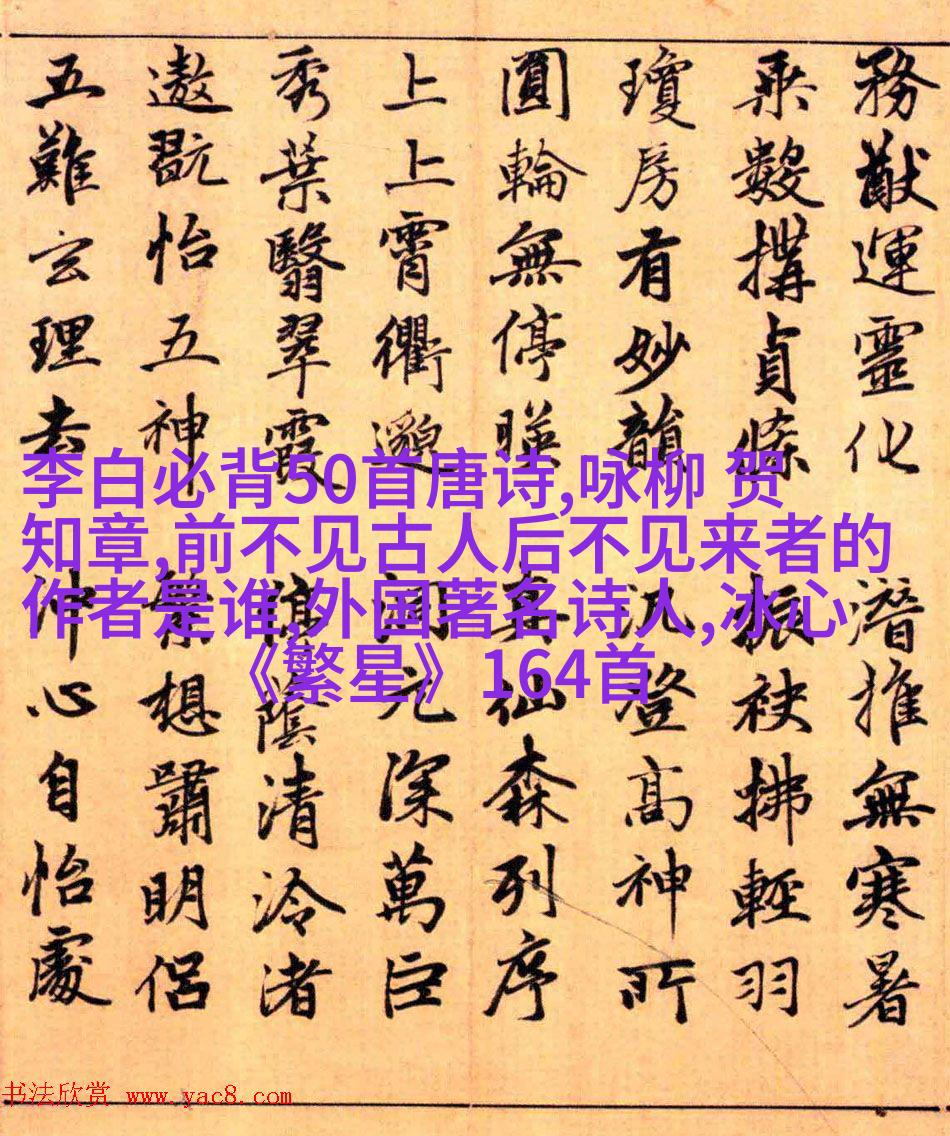 務猷運靈化 潛推無寒暑
乘數搆貞條 振袂拂輕羽
瓊房有妙韻 汎登高神所
圓輪無停暎 真仙森列序
上上霄衢邈 元深萬巨
秀葉翳翠霞 蔭清泠渚
遨翫怡五神 想嘯明侶
五難玄理去 沖心自怡處
李白必背50首唐诗,咏柳 贺
知章,前不见古人后不见来者的
作者是谁,外国著名诗人,冰心
《繁星》164首
书法欣赏 www.yac8.com